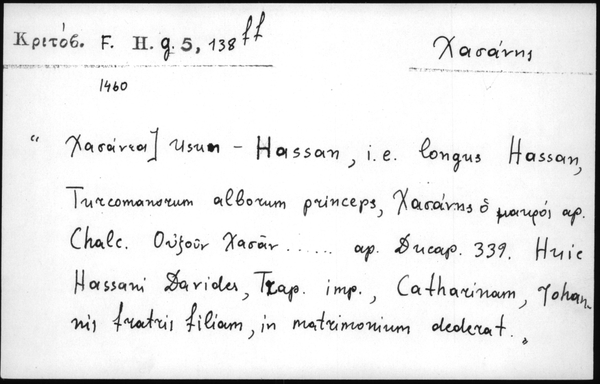 Κριτόβ. F. H. g. 5, 138 ff
Χασάνης
1460
“ Χασάνεα] Usun - Hassan, i.e. longus Hassan,
Turcomanorum alborum princeps, Χασάνης ὁ μακρός ap.
Chalc. Οὐζοῦν Χασὰν ...... ap. Ducap. 339. Huic
Hassani Davides, Trap. imp., Catharinam, Johan-
nis fratris filiam, in matrimonium dederat. „